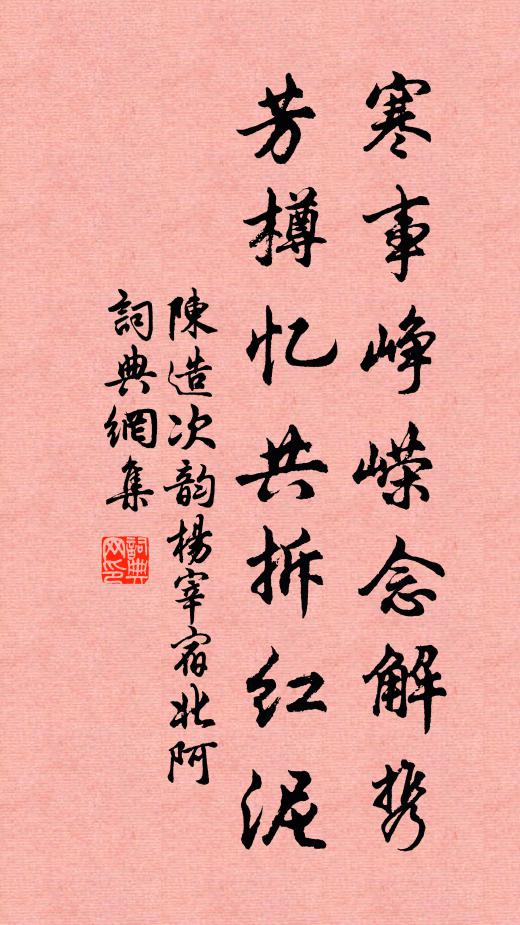 寒事峥嵘念解携
芳樽忆共拆红泥
陳造次韵楊宰宿北阿
詞典網集
詞典网印